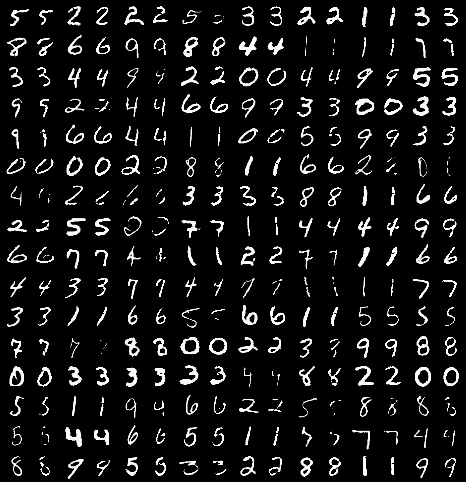 5 5 2 2 2 2 5 5 3 3 2 2 1 1 3 3
8 8 6 6 9 9 8 8 4 4 1 1 1 1 7 7
3 3 4 4 9 9 2 2 0 0 4 4 9 9 5 5
9 9 2 2 4 4 6 6 9 9 3 3 0 0 3 3
9 9 6 6 4 4 1 1 0 0 5 5 9 9 3 3
0 0 0 0 2 2 8 8 1 1 6 6 2 2 0
4 2 6 6 6 3 3 3 3 8 8 1 1 6 6
2 2 5 5 0 0 7 7 1 1 4 4 4 4 9 9
6 6 7 7 4 4 1 1 2 2 7 7 1 1 6 6
4 4 3 3 7 7 4 4 7 7 1 1 1 1 7 7
3 3 1 1 6 6 5 5 6 6 1 1 5 5 5 5
7 7 7 8 8 0 0 2 2 3 3 9 9 8 8
0 0 3 3 3 3 3 3 4 4 8 8 2 2 0 0
5 5 1 1 9 9 6 6 2 2 5 8 8 8 8
5 5 4 4 6 6 5 5 1 1 7 7 4 4
8 8 9 9 5 5 3 3 2 2 8 8 1 1 9 9